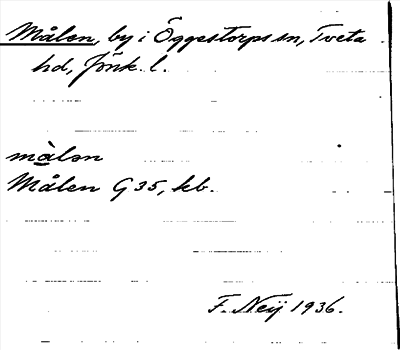 Målen, by i Öggestorps sn, Tveta
hd, Jönk. l.
målən
Målen G 35, kb.
F. Neij 1936.